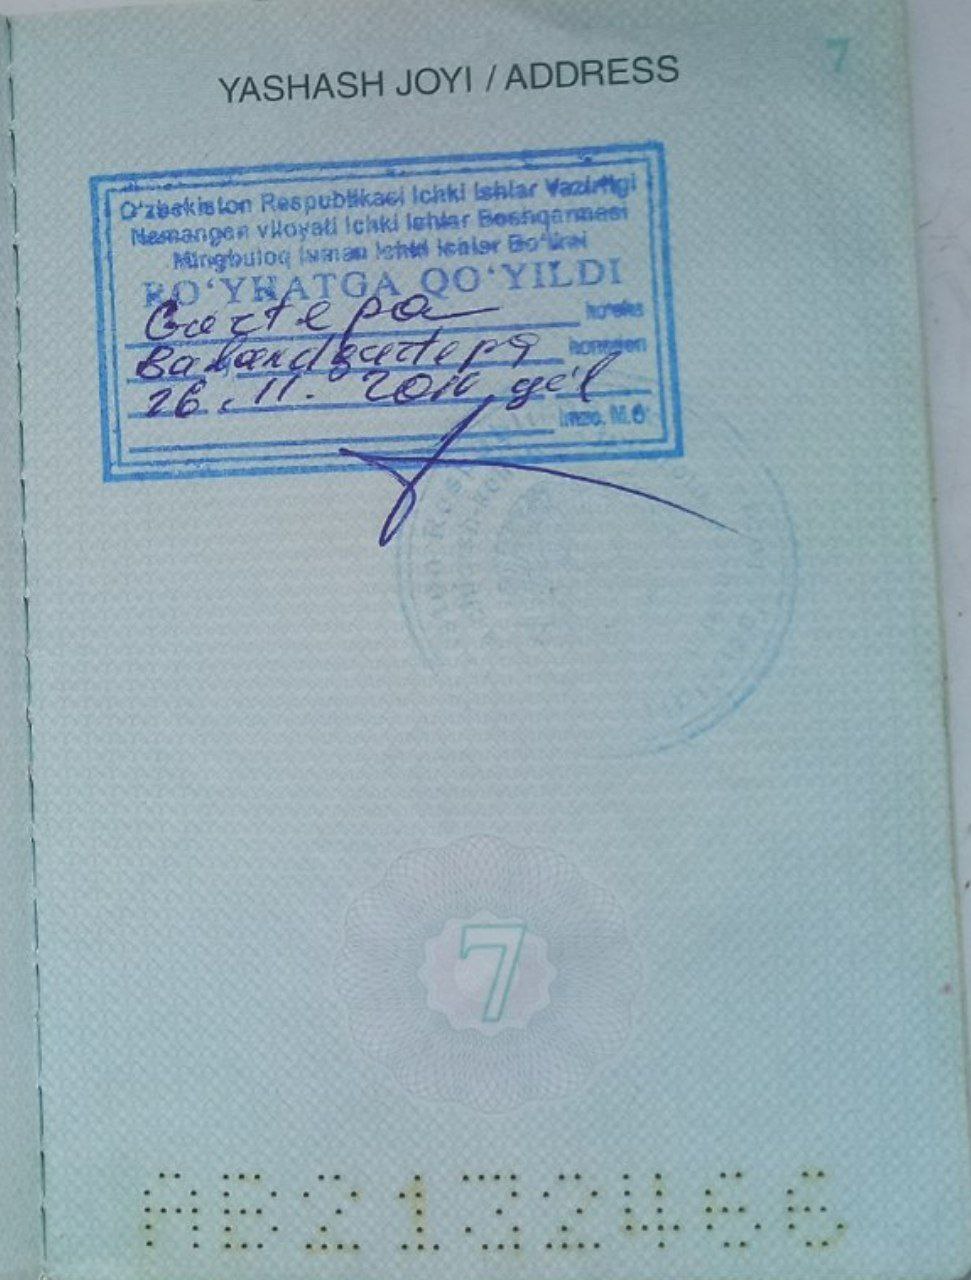 YASHASH JOYI / ADDRESS
7
O'zbekiston Respublikasi Ichki Ishlar Vazirligi
Namangan viloyati Ichki Ishlar Boshqarmasi
Mingbuloq tuman Ichki Ishlar Bo'limi
RO'YHATGA QO'YILDI
Gurtepa ko'cha
Balandgurtepa
26.11. y
Imzo, M.O'.
7
AB2132466